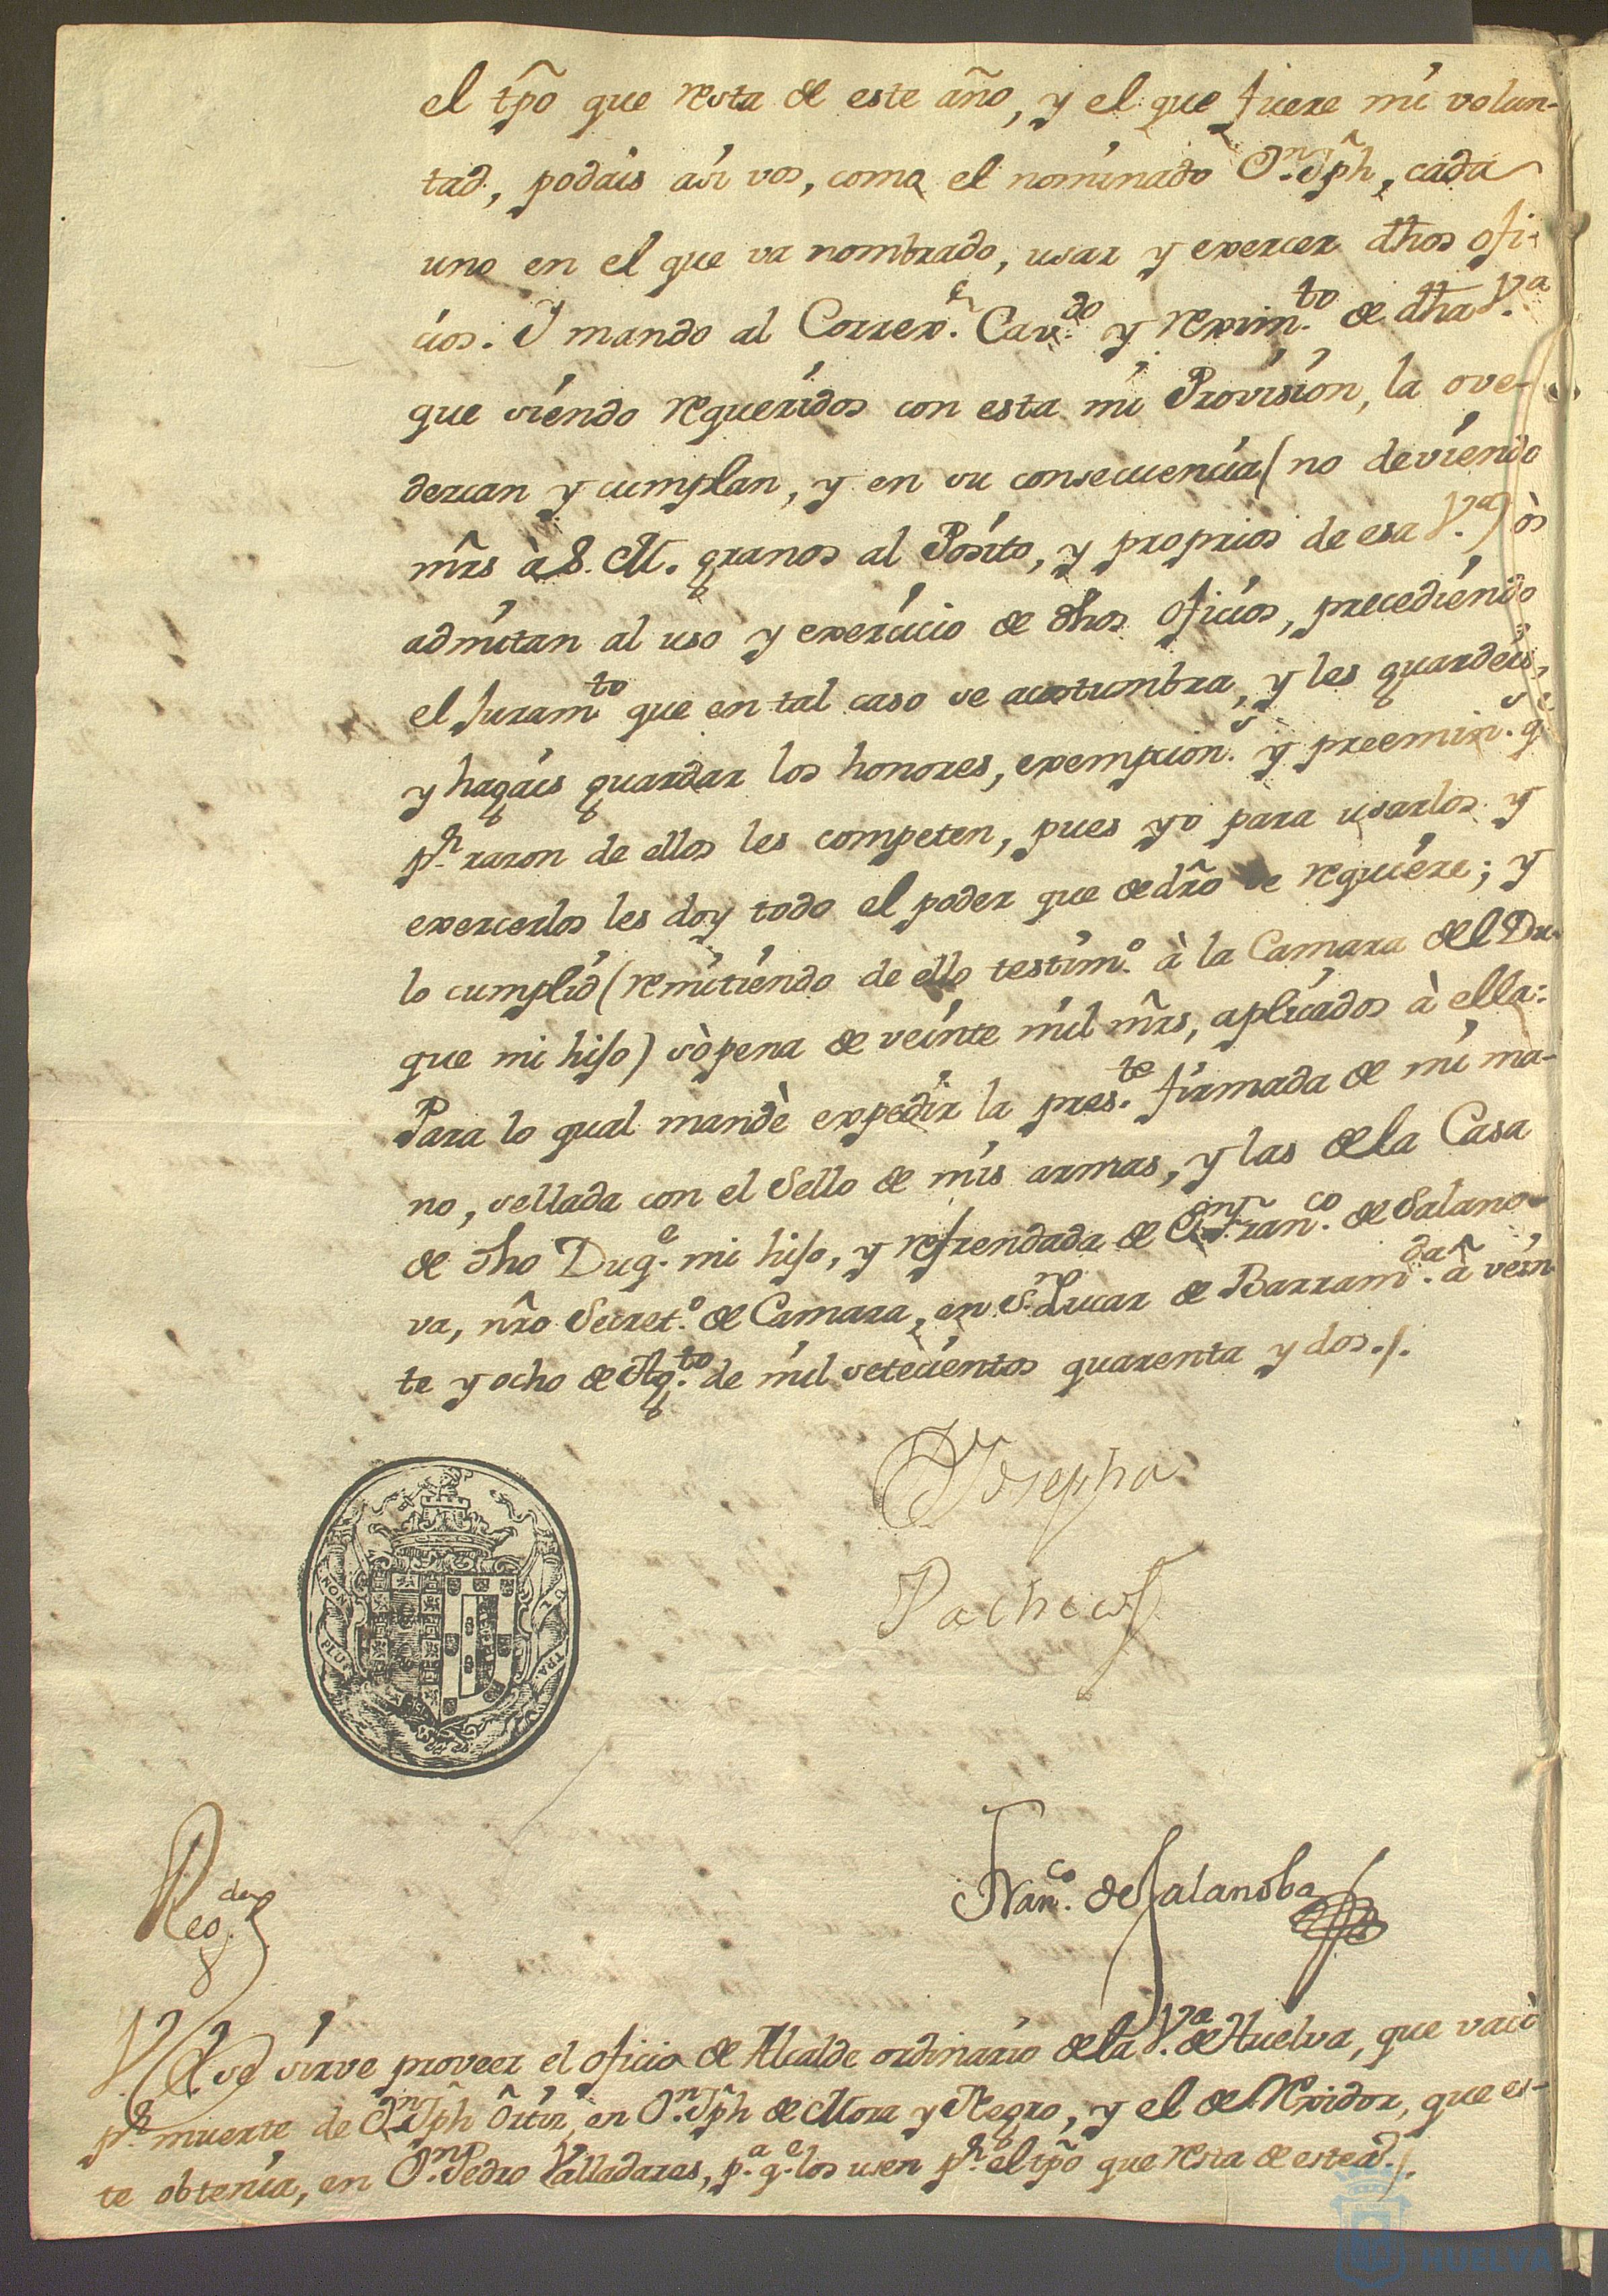 el tp̃o que resta de este año, y el que fuere mi volun-
tad, podais asi vos, como el nominado Dn. Jph̃, cada
uno en el que va nombrado, usar y exercer dh̃os ofi-
cios. Y mando al Correxr. Cavdo. y reximto. de dh̃a Va.
que siendo requeridos con esta mi Provision, la ove-
dezcan y cumplan, y en su consecuencia (no deviendo
mr̃s à S. M. granos al Posito, y proprios de esa Va.) òs
admitan al uso y exercicio de dh̃os oficios, precediendo
el juramto. que en tal caso se acostumbra, y les guardeis,
y hagais guardar los honores, exempcions. y preemins. q̃
pr. razon de ellos les competen, pues yo para usarlos y
exercerlos les doy todo el poder que de dr̃o se requiere; y
lo cumplid (remitiendo de ello testimo. à la Camara del Du-
que mi hijo) sò pena de veinte mil mr̃s, aplicados à ella:
Para lo qual mandè expedir la preste. firmada de mi ma-
no, sellada con el Sello de mis armas, y las de la Casa
de dh̃o Duqe. mi hijo, y refrendada de Dn. Franco. de Salano-
va, nr̃o Secreto. de Camara, en Sn. Lucar de Barramda. à vein
te y ocho de Agto. de mil setecientos quarenta y dos./.
Josepha
Pacheco
NON PLUS ULTRA
Regda.
Franco. de Salanoba
V. E. se sirve proveer el oficio de Alcalde ordinario de la Va. de Huelva, que vacò
pr. muerte de Dn. Jph̃ Ortiz, en Dn. Jph̃ de Mora y Negro, y el de Rexidor, que es-
te obtenia, en Dn. Pedro Valladares, pa. qe. los usen pr. el tp̃o que resta de este año./.
HUELVA